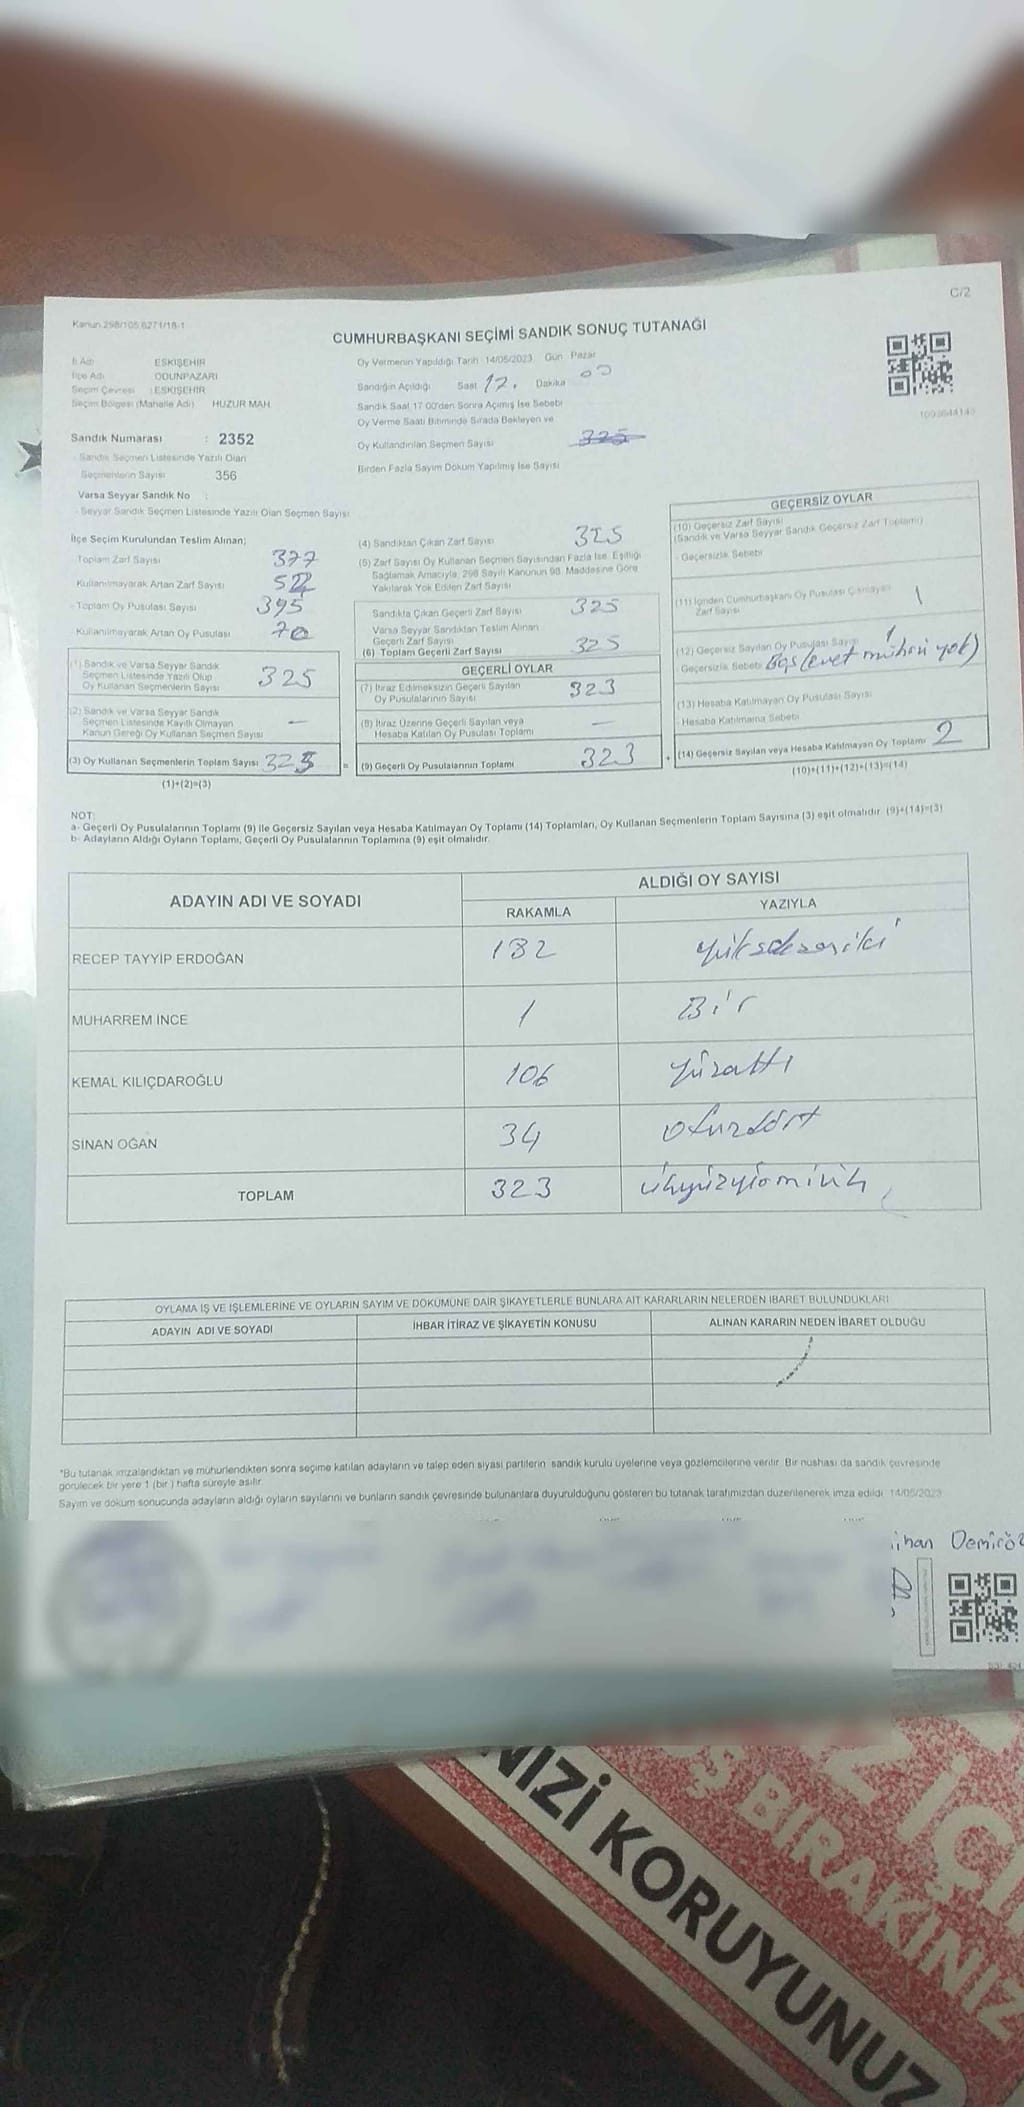 C/2
Kanun 298/105;6271/18-1
CUMHURBAŞKANI SEÇİMİ SANDIK SONUÇ TUTANAĞI
İl Adı ESKİŞEHİR
İlçe Adı ODUNPAZARI
Seçim Çevresi : ESKİŞEHİR
Seçim Bölgesi (Mahalle Adı) HUZUR MAH.
Sandık Numarası : 2352
- Sandık Seçmen Listesinde Yazılı Olan
Seçmenlerin Sayısı 356
Varsa Seyyar Sandık No :
- Seyyar Sandık Seçmen Listesinde Yazılı Olan Seçmen Sayısı
Oy Vermenin Yapıldığı Tarih 14/05/2023 Gün Pazar
Sandığın Açıldığı Saat 17. Dakika 00
Sandık Saat 17.00'den Sonra Açımış İse Sebebi
Oy Verme Saati Bitiminde Sırada Bekleyen ve
Oy Kullandırılan Seçmen Sayısı 325
Birden Fazla Sayım Döküm Yapılmış İse Sayısı
1003644145
İlçe Seçim Kurulundan Teslim Alınan;
- Toplam Zarf Sayısı 377
- Kullanılmayarak Artan Zarf Sayısı 52
- Toplam Oy Pusulası Sayısı 395
- Kullanılmayarak Artan Oy Pusulası 70
(1) Sandık ve Varsa Seyyar Sandık
Seçmen Listesinde Yazılı Olup
Oy Kullanan Seçmenlerin Sayısı 325
(2) Sandık ve Varsa Seyyar Sandık
Seçmen Listesinde Kayıtlı Olmayan
Kanun Gereği Oy Kullanan Seçmen Sayısı —
(3) Oy Kullanan Seçmenlerin Toplam Sayısı 325
(1)+(2)=(3)
=
(4) Sandıktan Çıkan Zarf Sayısı 325
(5) Zarf Sayısı Oy Kullanan Seçmen Sayısından Fazla İse, Eşitliği
Sağlamak Amacıyla, 298 Sayılı Kanunun 98. Maddesine Göre
Yakılarak Yok Edilen Zarf Sayısı
Sandıkta Çıkan Geçerli Zarf Sayısı 325
Varsa Seyyar Sandıktan Teslim Alınan
Geçerli Zarf Sayısı
(6) Toplam Geçerli Zarf Sayısı 325
GEÇERLİ OYLAR
(7) İtiraz Edilmeksizin Geçerli Sayılan
Oy Pusulalarının Sayısı 323
(8) İtiraz Üzerine Geçerli Sayılan veya
Hesaba Katılan Oy Pusulası Toplamı —
(9) Geçerli Oy Pusulalarının Toplamı 323
+
GEÇERSİZ OYLAR
(10) Geçersiz Zarf Sayısı
(Sandık ve Varsa Seyyar Sandık Geçersiz Zarf Toplamı)
- Geçersizlik Sebebi
(11) İçinden Cumhurbaşkanı Oy Pusulası Çıkmayan
Zarf Sayısı 1
(12) Geçersiz Sayılan Oy Pusulası Sayısı 1
Geçersizlik Sebebi Boş (evet mührü yok)
(13) Hesaba Katılmayan Oy Pusulası Sayısı
- Hesaba Katılmama Sebebi
(14) Geçersiz Sayılan veya Hesaba Katılmayan Oy Toplamı 2
(10)+(11)+(12)+(13)=(14)
NOT:
a- Geçerli Oy Pusulalarının Toplamı (9) ile Geçersiz Sayılan veya Hesaba Katılmayan Oy Toplamı (14) Toplamları, Oy Kullanan Seçmenlerin Toplam Sayısına (3) eşit olmalıdır. (9)+(14)=(3)
b- Adayların Aldığı Oyların Toplamı, Geçerli Oy Pusulalarının Toplamına (9) eşit olmalıdır.
ADAYIN ADI VE SOYADI
ALDIĞI OY SAYISI
RAKAMLA YAZIYLA
RECEP TAYYİP ERDOĞAN 182 yüzsekseniki
MUHARREM İNCE 1 Bir
KEMAL KILIÇDAROĞLU 106 yüzaltı
SİNAN OĞAN 34 otuzdört
TOPLAM 323
OYLAMA İŞ VE İŞLEMLERİNE VE OYLARIN SAYIM VE DÖKÜMÜNE DAİR ŞİKAYETLERLE BUNLARA AİT KARARLARIN NELERDEN İBARET BULUNDUKLARI
ADAYIN ADI VE SOYADI İHBAR İTİRAZ VE ŞİKAYETİN KONUSU ALINAN KARARIN NEDEN İBARET OLDUĞU
*Bu tutanak imzalandıktan ve mühürlendikten sonra seçime katılan adayların ve talep eden siyasi partilerin sandık kurulu üyelerine veya gözlemcilerine verilir. Bir nüshası da sandık çevresinde
görülecek bir yere 1 (bir ) hafta süreyle asılır.
Sayım ve döküm sonucunda adayların aldığı oyların sayılarını ve bunların sandık çevresinde bulunanlara duyurulduğunu gösteren bu tutanak tarafımızdan düzenlenerek imza edildi. 14/05/2023
ihan Demiröz
NIZI KORUYUNUZ
Z İÇİ
Ş BIRAKINIZ